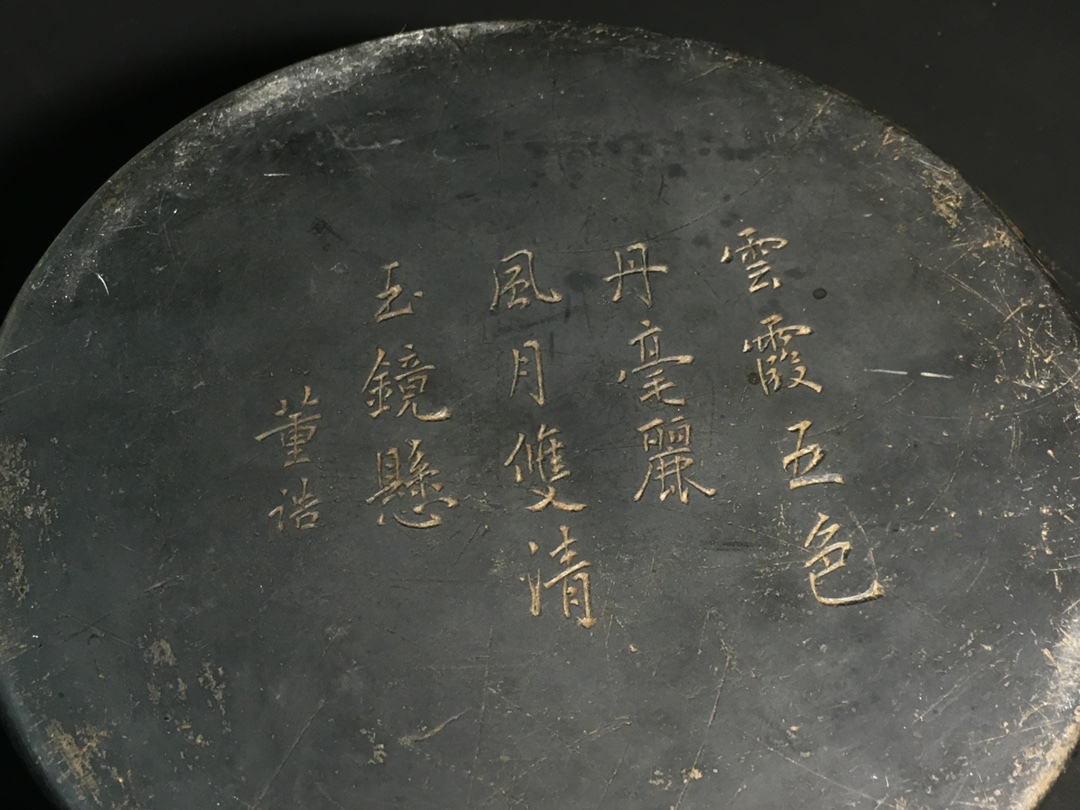 雲霞五色
丹毫麗
風月雙清
玉鏡懸
董誥